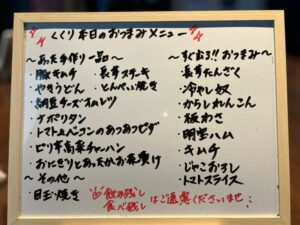 くくり本日のおつまみメニュー
〜あった手作り一品〜
・豚キムチ ・長芋ステーキ
・やきうどん ・とんぺい焼き
・納豆チーズオムレツ
・ナポリタン
・トマト&ベーコンのあつあつピザ
・ピリ辛高菜チャーハン
・おにぎりとあったかお茶漬け
〜その他〜
・目玉焼き
〜すぐ出る!!おつまみ〜
・長芋たんざく
・冷やし奴
・からしれんこん
・板わさ
・明宝ハム
・キムチ
・じゃこおろし
・トマトスライス
飲み残し
食べ残し
はご遠慮くださいませ